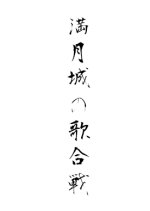 満月城の歌合戦